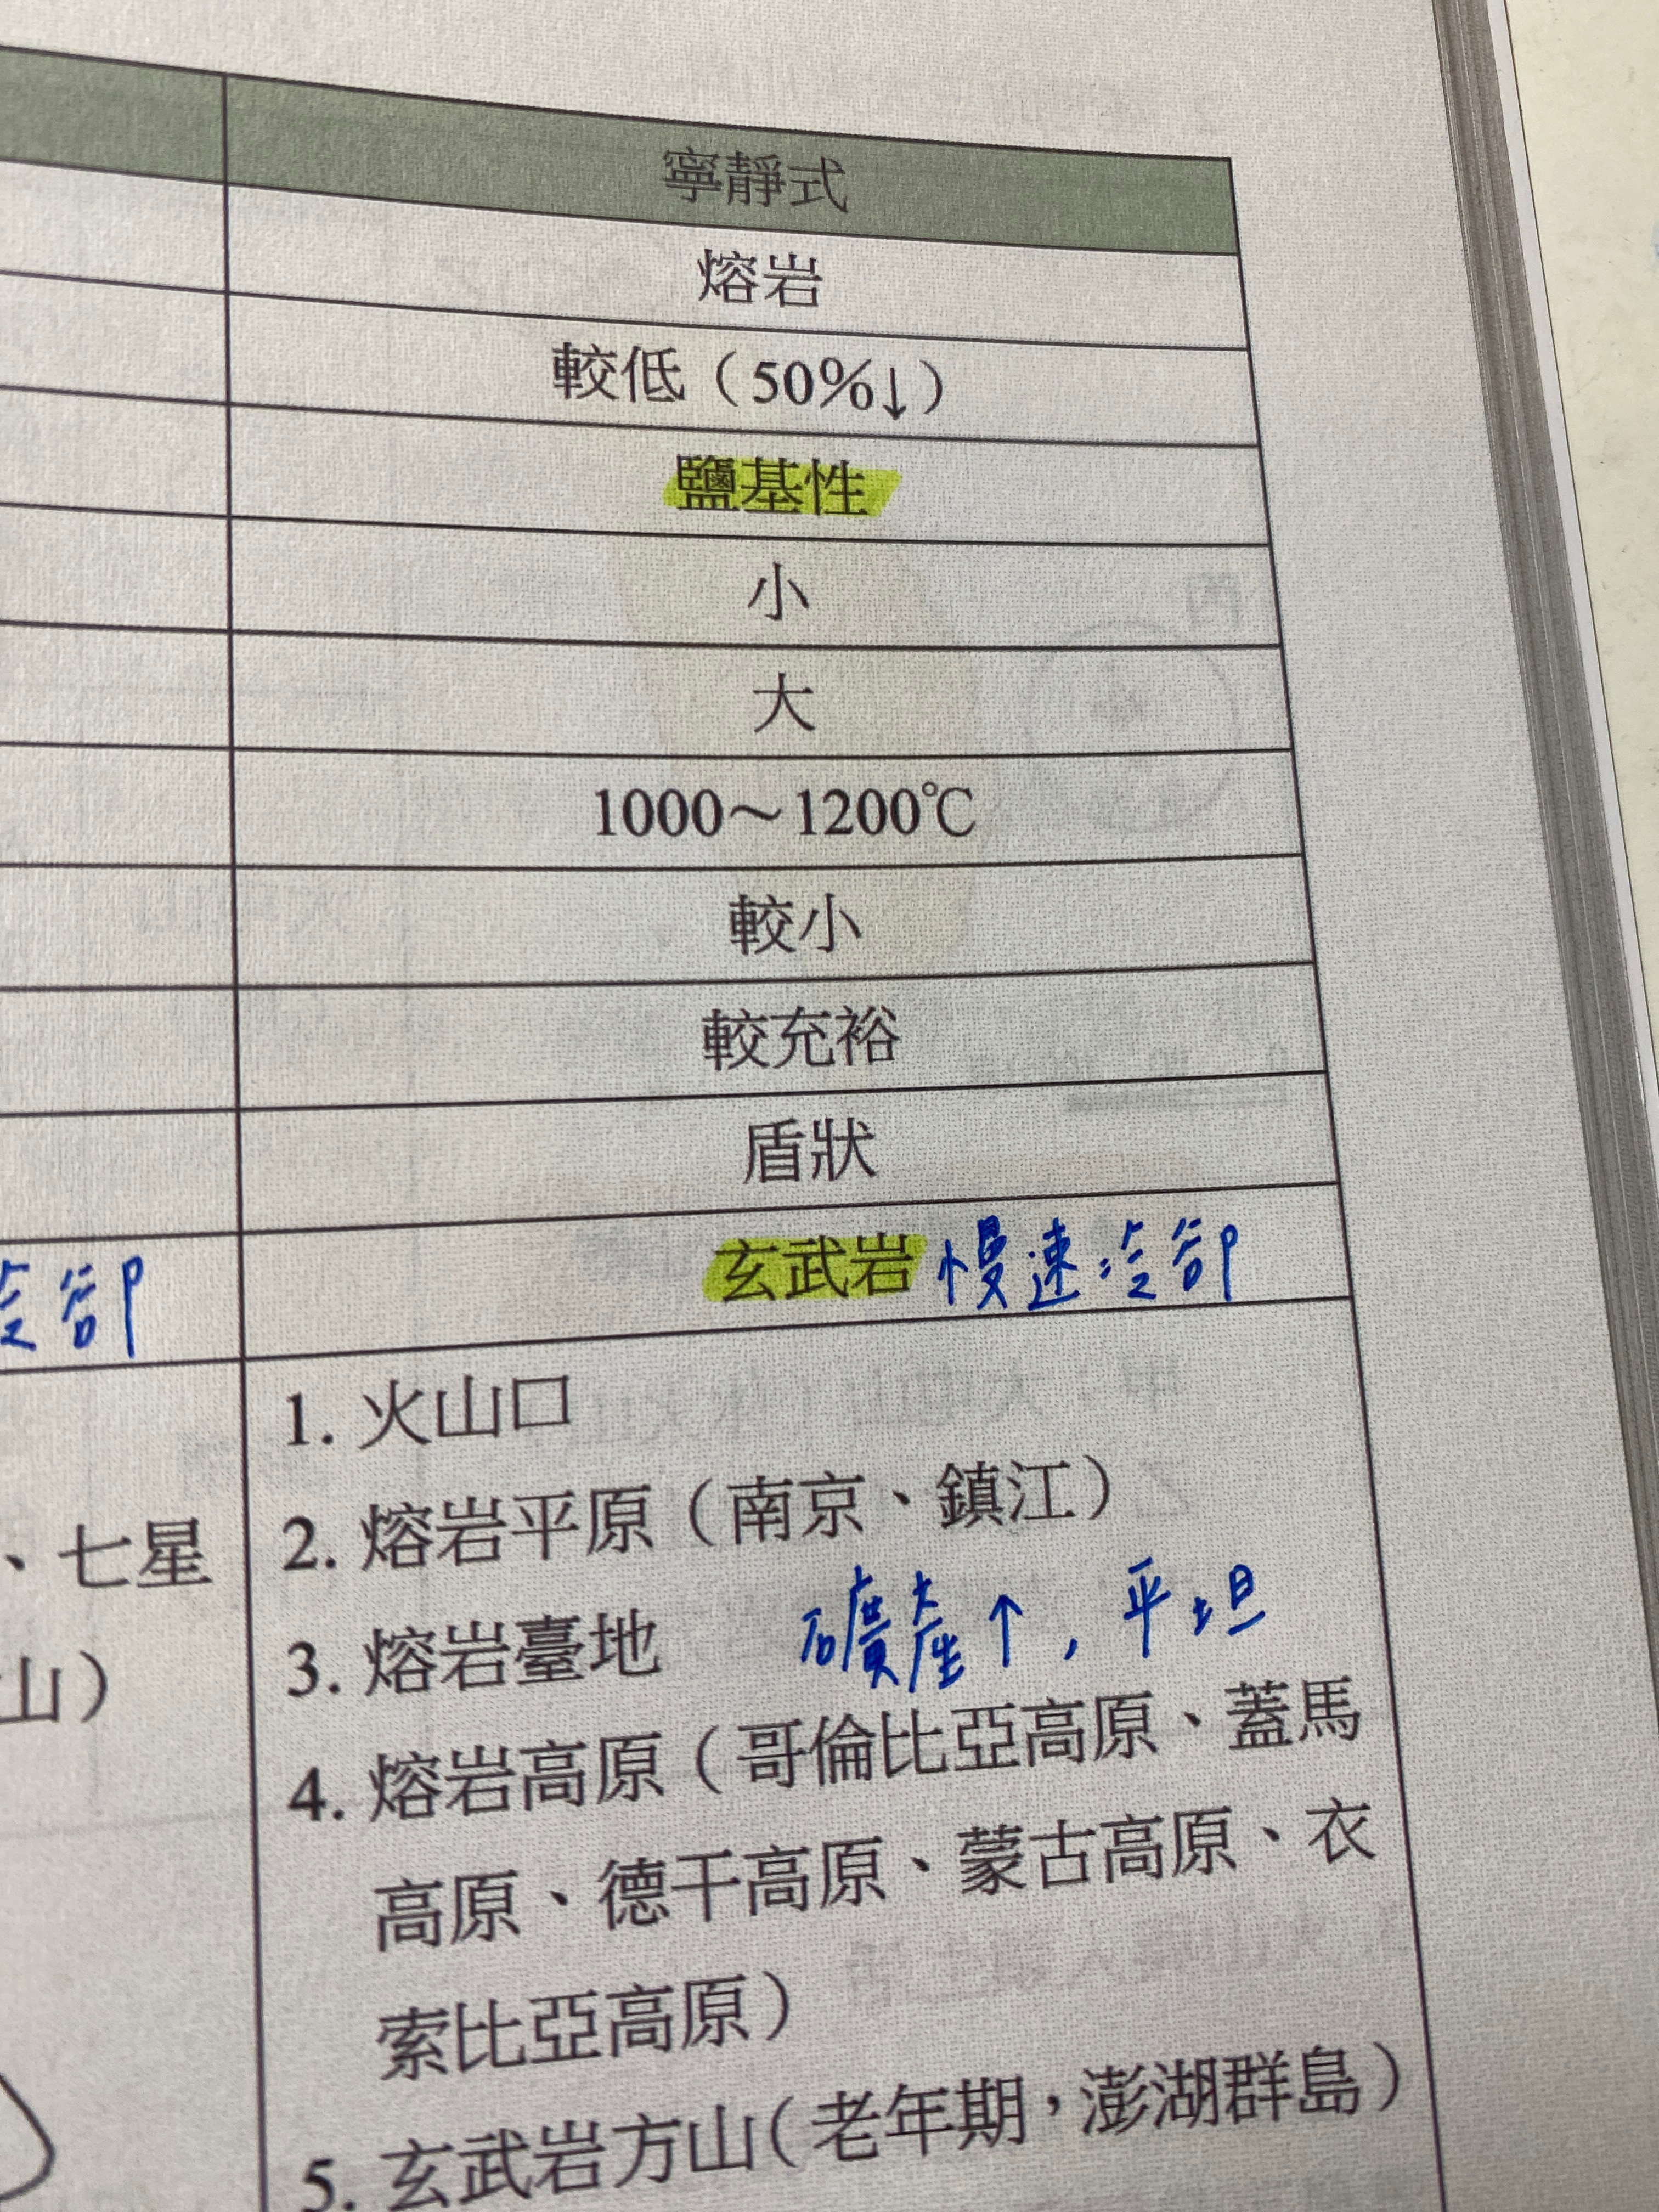 寧靜式
熔岩
較低（50%↓）
鹽基性
小
大
1000～1200℃
較小
較充裕
盾狀
冷卻
玄武岩 慢速冷卻
1. 火山口
2. 熔岩平原（南京、鎮江）
、七星
3. 熔岩臺地 礦產↑，平坦
山）
4. 熔岩高原（哥倫比亞高原、蓋馬
高原、德干高原、蒙古高原、衣
索比亞高原）
5. 玄武岩方山（老年期，澎湖群島）